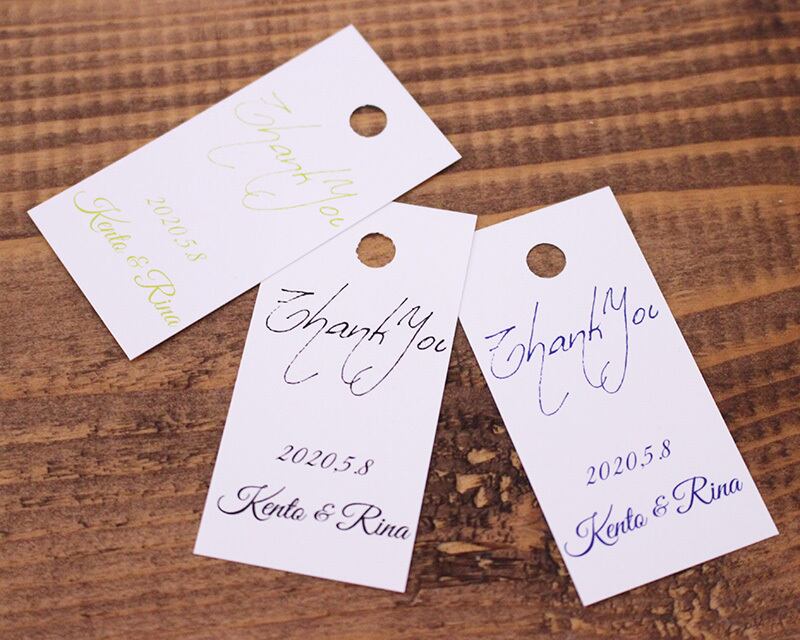 Thank You
2020.5.8
Kento & Rina
Thank You
2020.5.8
Kento & Rina
Thank You
2020.5.8
Kento & Rina